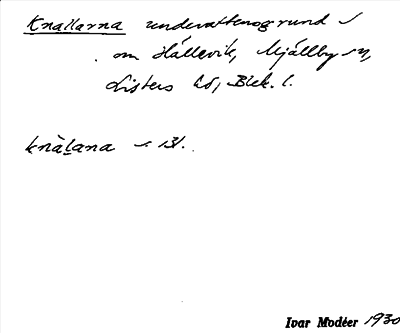 Knallarna undervattensgrund
om Hällevik, Mjällby sn,
Listers hd, Blek. l.
knàlana
Ivar Modéer 1930